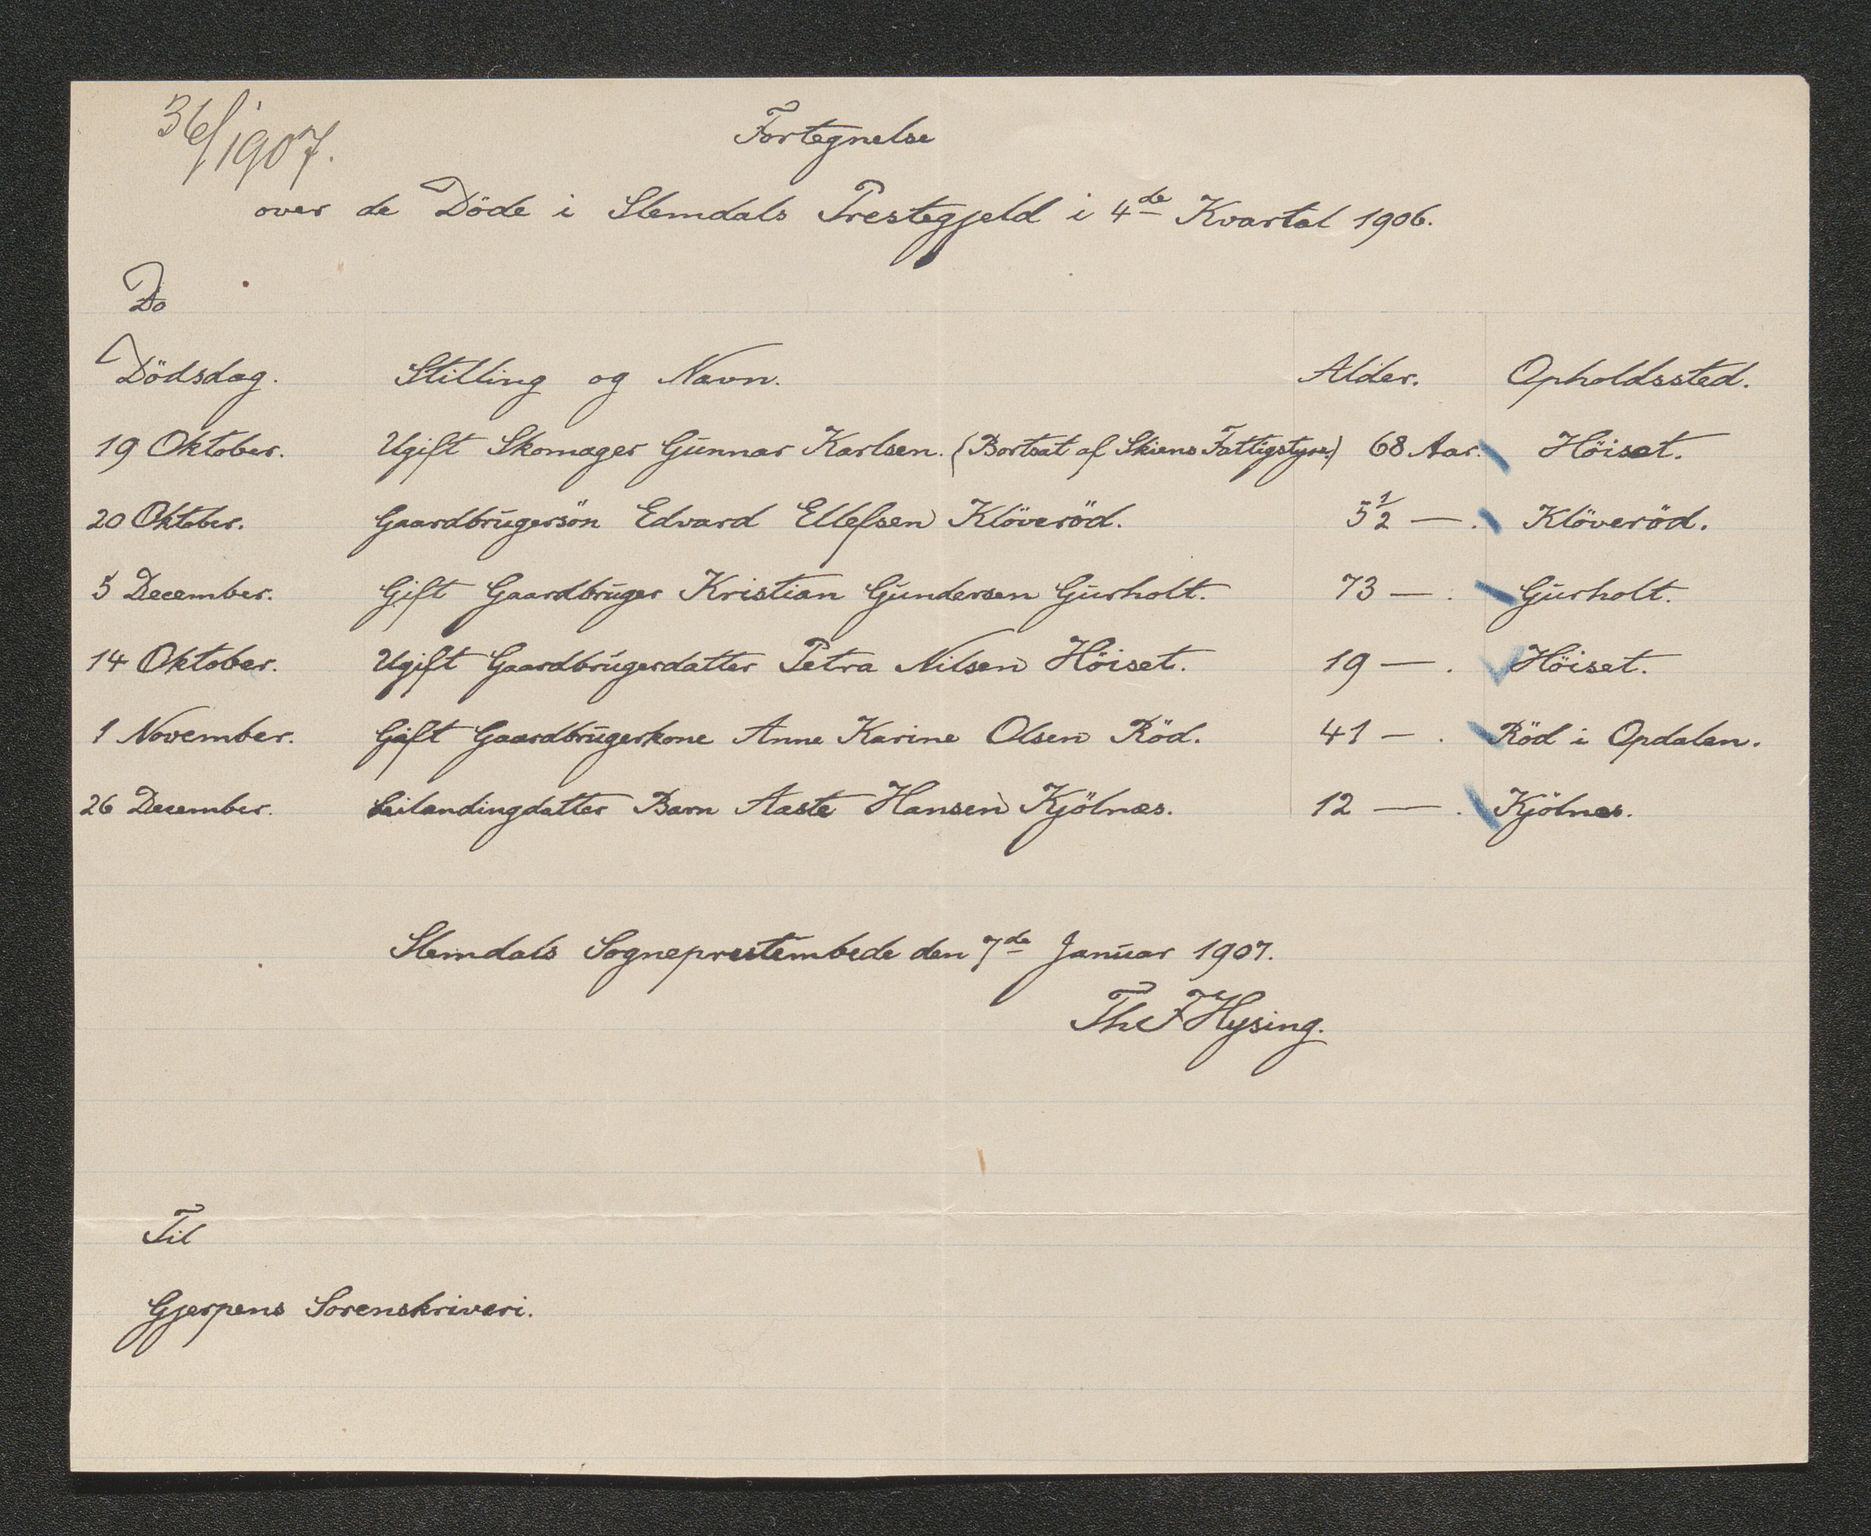 36/1907.
Fortegnelse
over de Döde i Slemdals Prestegjeld i 4de Kvartal 1906.
Do
Dödsdag. Stilling og Navn. Alder. Opholdssted.
19 Oktober. Ugift Skomager Gunnar Karlsen. (Bortsat af Skiens Fattigstyre) 68 Aar. Höiset.
20 Oktober. Gaardbrugersön Edvard Ellefsen Klöveröd. 5 1/2 —. Klöveröd.
5 December. Gift Gaardbruger Kristian Gundersen Gurholt. 73 —. Gurholt.
14 Oktober. Ugift Gaardbrugerdatter Petra Nilsen Höiset. 19 —. Höiset.
1 November. Gift Gaardbrugerkone Anne Karine Olsen Röd. 41 —. Röd i Opdalen.
26 December. Leilandingdatter Barn Aaste Hansen Kjölnæs. 12 —. Kjölnes.
Slemdals Sogneprestembede den 7de Januar 1907.
Th F Hysing.
Til
Gjerpens Sorenskriveri.